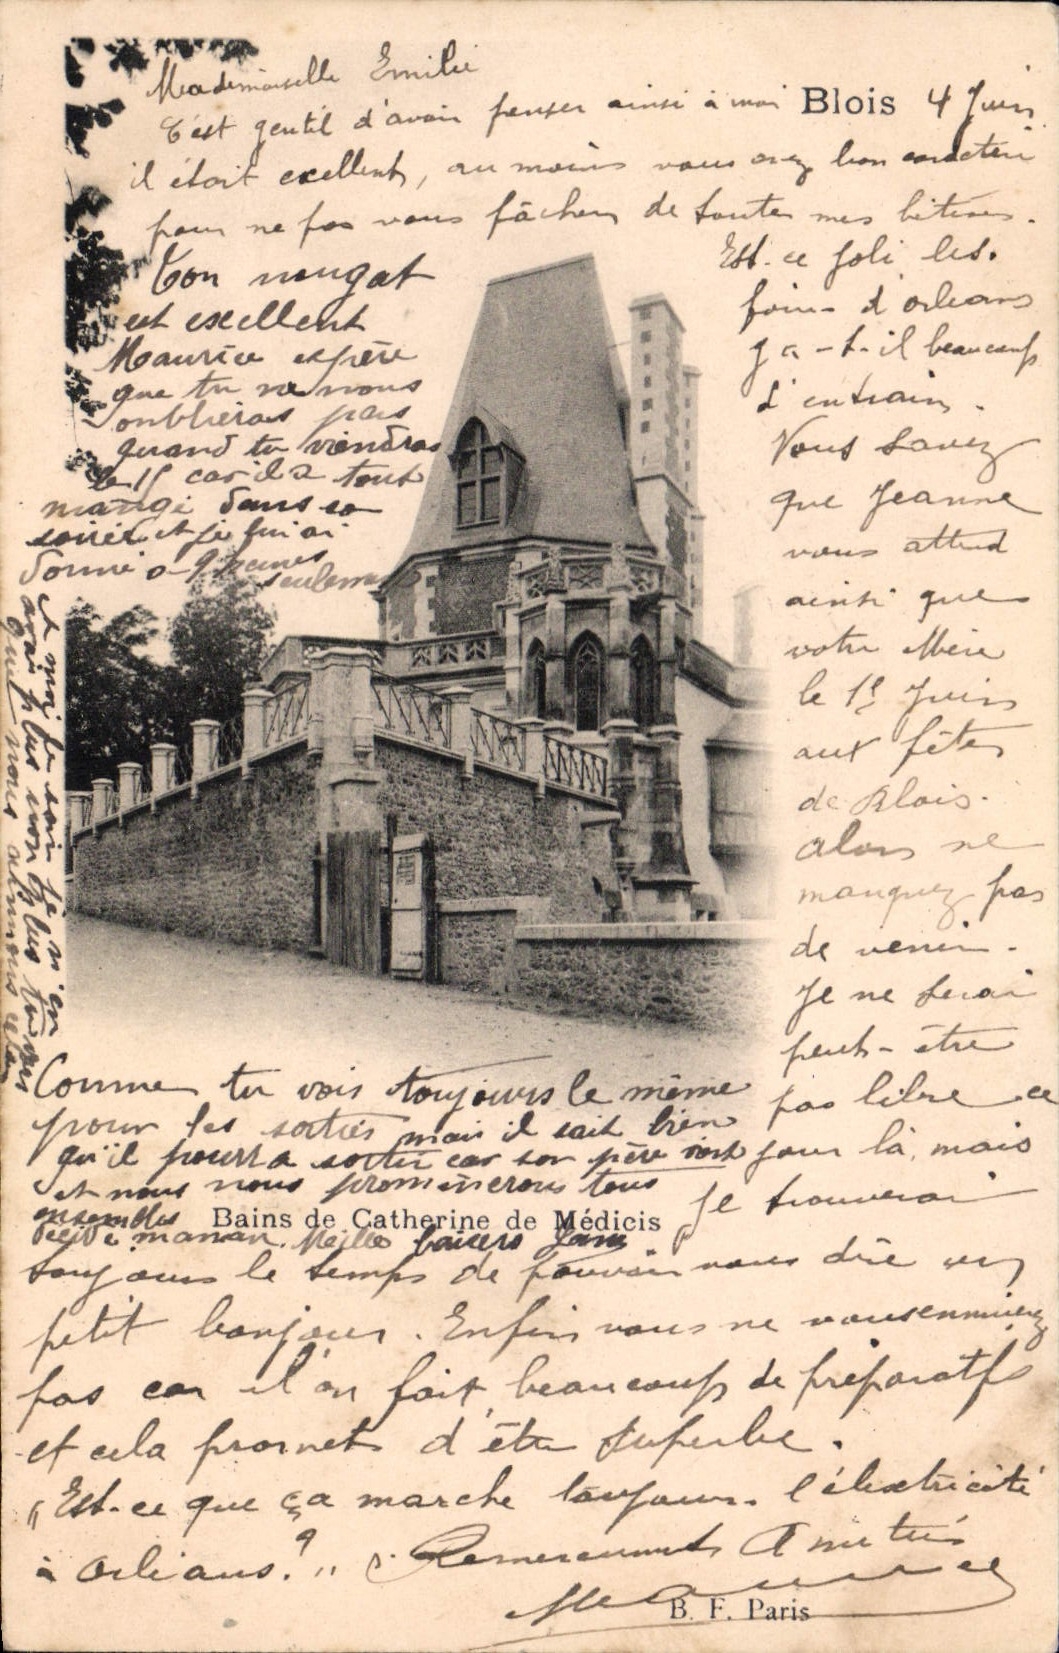 Mademoiselle Emilie
Blois 4 Juin
C'est gentil d'avoir penser ainsi à moi
il était exellent, au moins vous avez bon caractère
pour ne pas vous fâcher de toutes mes bêtises.
Est-ce joli les
foires d'orléans
y a-t-il beaucoup
d'entrain.
Vous savez
que Jeanne
vous attend
ainsi que
votre Mère
le 15 Juin
aux fêtes
de Blois.
alors ne
manquez pas
de venir.
Je ne serai
peut-être
pas libre ce
jour là, mais
je trouverai
toujours le temps de pouvoir vous dire un
petit bonjour. Enfin vous ne vous ennuierez
pas car l'on fait beaucoup de préparatifs
et cela promet d'être superbe.
"Est-ce que ça marche toujours l'électricité
à Orléans?"
Remerciements Amitiés
Maurice
Ton nougat
est exellent
Maurice espère
que tu ne nous
oublieras pas
quand tu viendras
le 15 car il a tout
mangé dans sa
soirée et je lui ai
donné à 9 heures
seulement
et moi je
avai plus non plus
nous
Comme tu vois toujours le même
pour les sorties mais il sait bien
qu'il pourra sortir car son père vient
et nous nous promènerons tous
ensembles
décidé maman. Meille baisers
Bains de Catherine de Médicis
B. F. Paris